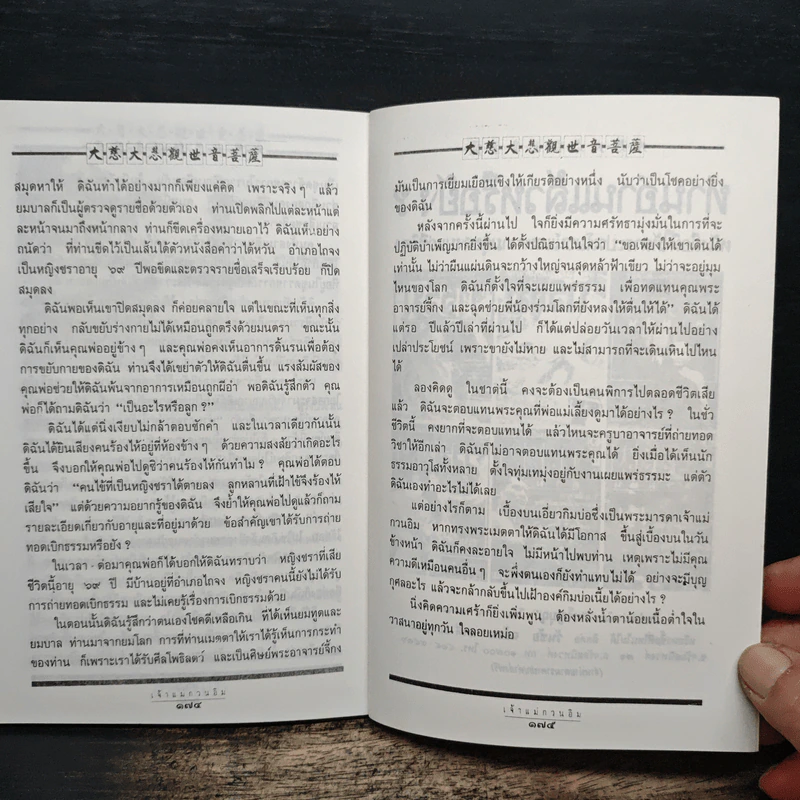 大・慈・大・悲・觀・世・音・菩・薩
สมุดหาให้ ดิฉันทำได้อย่างมากก็เพียงแค่คิด เพราะจริงๆ แล้ว
ยมบาลก็เป็นผู้ตรวจดูรายชื่อด้วยตัวเอง ท่านเปิดพลิกไปแต่ละหน้าแต่
ละหน้าจนมาถึงหน้ากลาง ท่านก็ขีดเครื่องหมายเอาไว้ ดิฉันเห็นอย่าง
ถนัดว่า ที่ท่านขีดไว้เป็นเส้นใต้ตัวหนังสือคำว่าไต้หวัน อำเภอไถจง
เป็นหญิงชราอายุ ๖๙ ปีพอขีดและตรวจรายชื่อเสร็จเรียบร้อย ก็ปิด
สมุดลง
ดิฉันพอเห็นเขาปิดสมุดลง ก็ค่อยคลายใจ แต่ในขณะที่เห็นทุกสิ่ง
ทุกอย่าง กลับขยับร่างกายไม่ได้เหมือนถูกตรึงด้วยมนตรา ขณะนั้น
ดิฉันก็เห็นคุณพ่ออยู่ข้างๆ และคุณพ่อคงเห็นอาการดิ้นรนเพื่อต้อง
การขยับกายของดิฉัน ท่านจึงได้เขย่าตัวให้ดิฉันตื่นขึ้น แรงสัมผัสของ
คุณพ่อช่วยให้ดิฉันพ้นจากอาการเหมือนถูกผีอำ พอดิฉันรู้สึกตัว คุณ
พ่อก็ได้ถามดิฉันว่า “เป็นอะไรหรือลูก ?”
ดิฉันได้แต่นิ่งเงียบไม่กล้าตอบซักคำ และในเวลาเดียวกันนั้น
ดิฉันได้ยินเสียงคนร้องไห้อยู่ที่ห้องข้างๆ ด้วยความสงสัยว่าเกิดอะไร
ขึ้น จึงบอกให้คุณพ่อไปดูซิว่าคนร้องไห้กันทำไม ? คุณพ่อได้ตอบ
ดิฉันว่า “คนไข้ที่เป็นหญิงชราได้ตายลง ลูกหลานที่เฝ้าไข้จึงร้องไห้
เสียใจ” แต่ด้วยความอยากรู้ของดิฉัน จึงย้ำให้คุณพ่อไปดูแล้วก็ถาม
รายละเอียดเกี่ยวกับอายุและที่อยู่มาด้วย ข้อสำคัญเขาได้รับการถ่าย
ทอดเบิกธรรมหรือยัง ?
ในเวลา ต่อมาคุณพ่อก็ได้บอกให้ดิฉันทราบว่า หญิงชราที่เสีย
ชีวิตนี้อายุ ๖๙ ปี มีบ้านอยู่ที่อำเภอไถจง หญิงชราคนนี้ยังไม่ได้รับ
การถ่ายทอดเบิกธรรม และไม่เคยรู้เรื่องการเบิกธรรมด้วย
ในตอนนั้นดิฉันรู้สึกว่าตนเองโชคดีเหลือเกิน ที่ได้เห็นยมทูตและ
ยมบาล ท่านมาจากยมโลก การที่ท่านเมตตาให้เราได้รู้เห็นการกระทำ
ของท่าน ก็เพราะเราได้รับศีลโพธิสัตว์ และเป็นศิษย์พระอาจารย์จี้กง
เจ้าแม่กวนอิม
๑๗๔
大・慈・大・悲・觀・世・音・菩・薩
มันเป็นการเยี่ยมเยือนเชิงให้เกียรติอย่างหนึ่ง นับว่าเป็นโชคอย่างยิ่ง
ของดิฉัน
หลังจากครั้งนี้ผ่านไป ใจก็ยิ่งมีความศรัทธามุ่งมั่นในการที่จะ
ปฏิบัติบำเพ็ญมากยิ่งขึ้น ได้ตั้งปณิธานในใจว่า “ขอเพียงให้เขาเดินได้
เท่านั้น ไม่ว่าผืนแผ่นดินจะกว้างใหญ่จนสุดหล้าฟ้าเขียว ไม่ว่าจะอยู่มุม
ไหนของโลก ดิฉันก็ตั้งใจที่จะเผยแพร่ธรรม เพื่อทดแทนคุณพระ
อาจารย์จี้กง และฉุดช่วยพี่น้องร่วมโลกที่ยังหลงให้ตื่นให้ได้” ดิฉันได้
แต่รอ ปีแล้วปีเล่าที่ผ่านไป ก็ได้แต่ปล่อยวันเวลาให้ผ่านไปอย่าง
เปล่าประโยชน์ เพราะขายังไม่หาย และไม่สามารถที่จะเดินเหินไปไหน
ได้
ลองคิดดู ในชาตินี้ คงจะต้องเป็นคนพิการไปตลอดชีวิตเสีย
แล้ว ดิฉันจะตอบแทนพระคุณที่พ่อแม่เลี้ยงดูมาได้อย่างไร ? ในชั่ว
ชีวิตนี้ คงยากที่จะตอบแทนได้ แล้วไหนจะครูบาอาจารย์ที่ถ่ายทอด
วิชาให้อีกเล่า ดิฉันก็ไม่อาจตอบแทนพระคุณได้ ยิ่งเมื่อได้เห็นนัก
ธรรมอาวุโสทั้งหลาย ตั้งใจทุ่มเทมุ่งอยู่กับงานเผยแพร่ธรรมะ แต่ตัว
ดิฉันเองทำอะไรไม่ได้เลย
แต่อย่างไรก็ตาม เบื้องบนเอี่ยวกิมบ่อซึ่งเป็นพระมารดาเจ้าแม่
กวนอิม หากทรงพระเมตตาให้ดิฉันได้มีโอกาส ขึ้นสู่เบื้องบนในวัน
ข้างหน้า ดิฉันก็คงละอายใจ ไม่มีหน้าไปพบท่าน เหตุเพราะไม่มีคุณ
ความดีเหมือนคนอื่นๆ จะพึ่งตนเองก็ยังทำแทบไม่ได้ อย่างจะมีบุญ
กุศลอะไร แล้วจะกล้ากลับขึ้นไปเฝ้าองค์กิมบ่อเนี้ยได้อย่างไร ?
นิ่งคิดความเศร้าก็ยิ่งเพิ่มพูน ต้องหลั่งน้ำตาน้อยเนื้อต่ำใจใน
วาสนาอยู่ทุกวัน ใจลอยเหม่อ
เจ้าแม่กวนอิม
๑๗๕